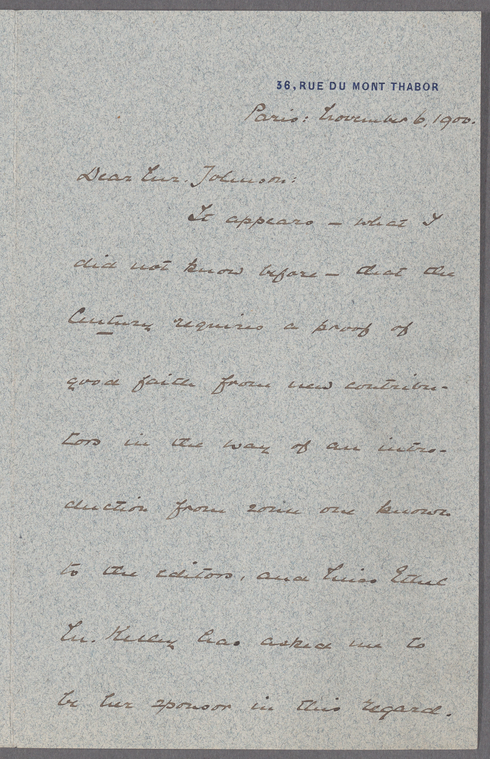 36, RUE DU MONT THABOR
Paris: November 6, 1900.
Dear Mr. Johnson:
It appears – what I
did not know before – that the
Century requires a proof of
good faith from new contribu-
tors in the way of an intro-
duction from some one known
to the editors, and Miss Ethel
M. Kelley has asked me to
be her sponsor in this regard.